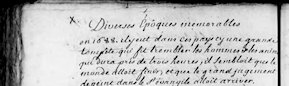 Diverses Epoques memorables
en 1688. il y eut dans ces pays cy une grande
tempeste qui fit trembler les hommes &
qui dura près de trois heures, il sembloit que le
monde alloit finir, et que le grand jugement
dans le St Evangile alloit arriver.